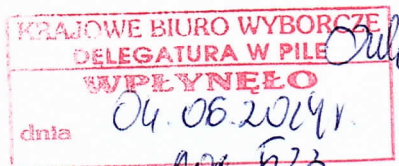 KRAJOWE BIURO WYBORCZE
DELEGATURA W PILE
WPŁYNĘŁO
dnia 04.06.2014r.
573